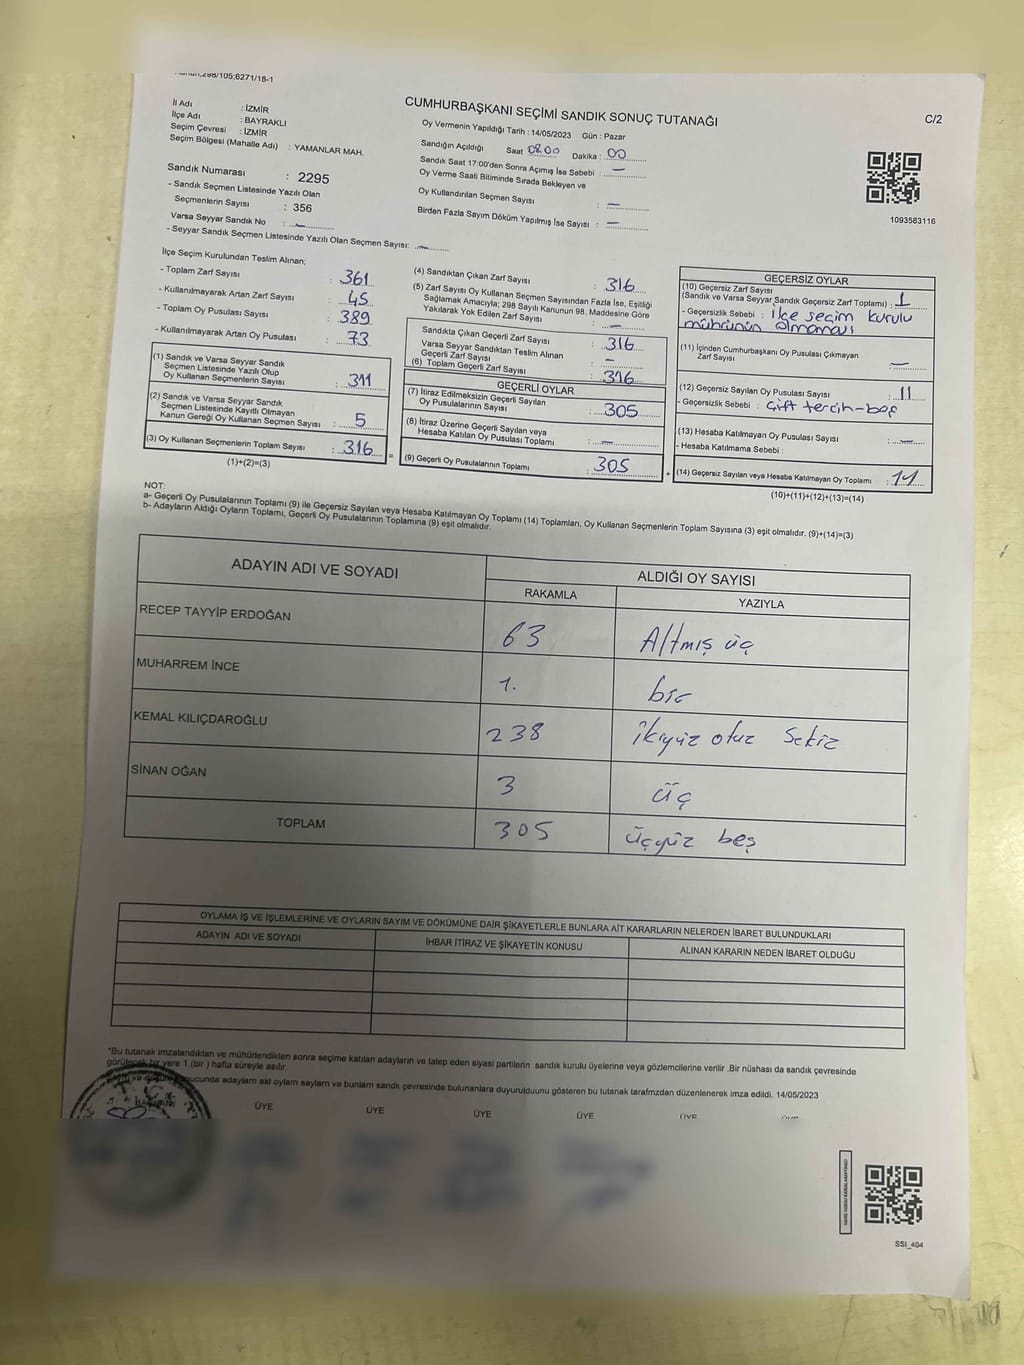 298/105;6271/18-1
CUMHURBAŞKANI SEÇİMİ SANDIK SONUÇ TUTANAĞI
C/2
İl Adı : İZMİR
İlçe Adı : BAYRAKLI
Seçim Çevresi : İZMİR
Seçim Bölgesi (Mahalle Adı) : YAMANLAR MAH.
Sandık Numarası : 2295
- Sandık Seçmen Listesinde Yazılı Olan
Seçmenlerin Sayısı : 356
Varsa Seyyar Sandık No : —
- Seyyar Sandık Seçmen Listesinde Yazılı Olan Seçmen Sayısı: —
Oy Vermenin Yapıldığı Tarih : 14/05/2023 Gün : Pazar
Sandığın Açıldığı Saat 08.00 Dakika : 00
Sandık Saat 17:00'den Sonra Açımış İse Sebebi : —
Oy Verme Saati Bitiminde Sırada Bekleyen ve
Oy Kullandırılan Seçmen Sayısı : —
Birden Fazla Sayım Döküm Yapılmış İse Sayısı : —
1093583116
İlçe Seçim Kurulundan Teslim Alınan;
- Toplam Zarf Sayısı : 361
- Kullanılmayarak Artan Zarf Sayısı : 45
- Toplam Oy Pusulası Sayısı : 389
- Kullanılmayarak Artan Oy Pusulası : 73
(1) Sandık ve Varsa Seyyar Sandık
Seçmen Listesinde Yazılı Olup
Oy Kullanan Seçmenlerin Sayısı : 311
(2) Sandık ve Varsa Seyyar Sandık
Seçmen Listesinde Kayıtlı Olmayan
Kanun Gereği Oy Kullanan Seçmen Sayısı : 5
(3) Oy Kullanan Seçmenlerin Toplam Sayısı : 316
(1)+(2)=(3)
=
(4) Sandıktan Çıkan Zarf Sayısı : 316
(5) Zarf Sayısı Oy Kullanan Seçmen Sayısından Fazla İse, Eşitliği
Sağlamak Amacıyla; 298 Sayılı Kanunun 98. Maddesine Göre
Yakılarak Yok Edilen Zarf Sayısı : —
Sandıkta Çıkan Geçerli Zarf Sayısı : 316
Varsa Seyyar Sandıktan Teslim Alınan
Geçerli Zarf Sayısı : —
(6) Toplam Geçerli Zarf Sayısı : 316
GEÇERLİ OYLAR
(7) İtiraz Edilmeksizin Geçerli Sayılan
Oy Pusulalarının Sayısı : 305
(8) İtiraz Üzerine Geçerli Sayılan veya
Hesaba Katılan Oy Pusulası Toplamı : —
(9) Geçerli Oy Pusulalarının Toplamı : 305
+
GEÇERSİZ OYLAR
(10) Geçersiz Zarf Sayısı
(Sandık ve Varsa Seyyar Sandık Geçersiz Zarf Toplamı) : 1
- Geçersizlik Sebebi : ilçe seçim kurulu
mührünün olmaması
(11) İçinden Cumhurbaşkanı Oy Pusulası Çıkmayan
Zarf Sayısı : —
(12) Geçersiz Sayılan Oy Pusulası Sayısı : 11
- Geçersizlik Sebebi : Çift tercih-boş
(13) Hesaba Katılmayan Oy Pusulası Sayısı : —
- Hesaba Katılmama Sebebi :
(14) Geçersiz Sayılan veya Hesaba Katılmayan Oy Toplamı : 11
(10)+(11)+(12)+(13)=(14)
NOT:
a- Geçerli Oy Pusulalarının Toplamı (9) ile Geçersiz Sayılan veya Hesaba Katılmayan Oy Toplamı (14) Toplamları, Oy Kullanan Seçmenlerin Toplam Sayısına (3) eşit olmalıdır. (9)+(14)=(3)
b- Adayların Aldığı Oyların Toplamı, Geçerli Oy Pusulalarının Toplamına (9) eşit olmalıdır.
ADAYIN ADI VE SOYADI
ALDIĞI OY SAYISI
RAKAMLA YAZIYLA
RECEP TAYYİP ERDOĞAN 63 Altmış üç
MUHARREM İNCE 1. bir
KEMAL KILIÇDAROĞLU 238 ikiyüz otuz Sekiz
SİNAN OĞAN 3 üç
TOPLAM 305 üçyüz beş
OYLAMA İŞ VE İŞLEMLERİNE VE OYLARIN SAYIM VE DÖKÜMÜNE DAİR ŞİKAYETLERLE BUNLARA AİT KARARLARIN NELERDEN İBARET BULUNDUKLARI
ADAYIN ADI VE SOYADI İHBAR İTİRAZ VE ŞİKAYETİN KONUSU ALINAN KARARIN NEDEN İBARET OLDUĞU
*Bu tutanak imzalandıktan ve mühürlendikten sonra seçime katılan adayların ve talep eden siyasi partilerin sandık kurulu üyelerine veya gözlemcilerine verilir .Bir nüshası da sandık çevresinde
görülecek bir yere 1 (bir ) hafta süreyle asılır.
ucunda adayların ald oyların sayların ve bunların sandk çevresinde bulunanlara duyurulduunu gösteren bu tutanak tarafmzdan düzenlenerek imza edildi. 14/05/2023
BAŞKAN ÜYE ÜYE ÜYE ÜYE ÜYE
SSI_404